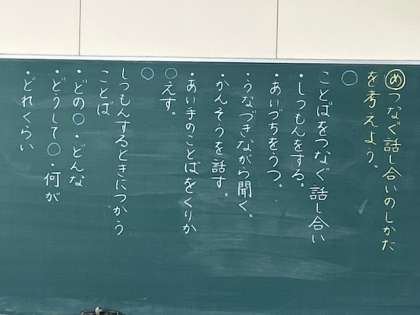 めつなぐ話し合いのしかた
を考えよう。
○
ことばをつなぐ話し合い
・しつもんをする。
・あいづちをうつ。
・うなづきながら聞く。
・かんそうを話す。
・あい手のことばをくりか
○えす。
○
しつもんするときにつかう
ことば
・どの○・どんな
・どうして○・何が
・どれくらい